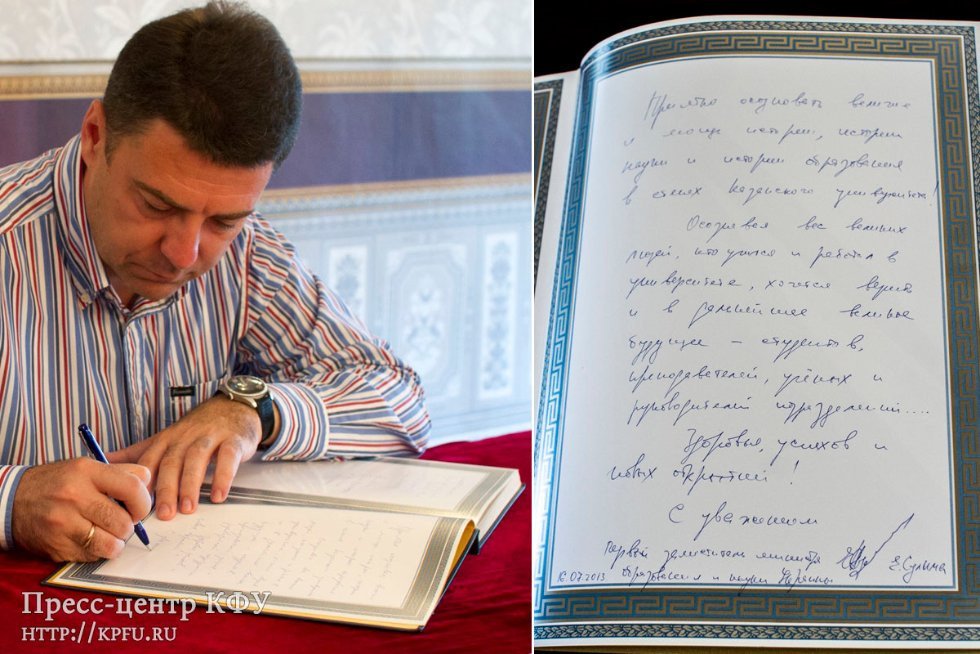 Пресс-центр КФУ
HTTP://KPFU.RU
Приятно осознавать величие
и мощь истории, истории
науки и истории образования
в стенах Казанского университета!
Осознавая вес великих
людей, кто учился и работал в
университете, хочется верить
и в дальнейшее великое
будущее – студентов,
преподавателей, учёных и
руководителей подразделений....
Здоровья, успехов и
новых открытий!
С уважением
Первый заместитель министра
образования и науки Украины
Е. Сулима
16.07.2013